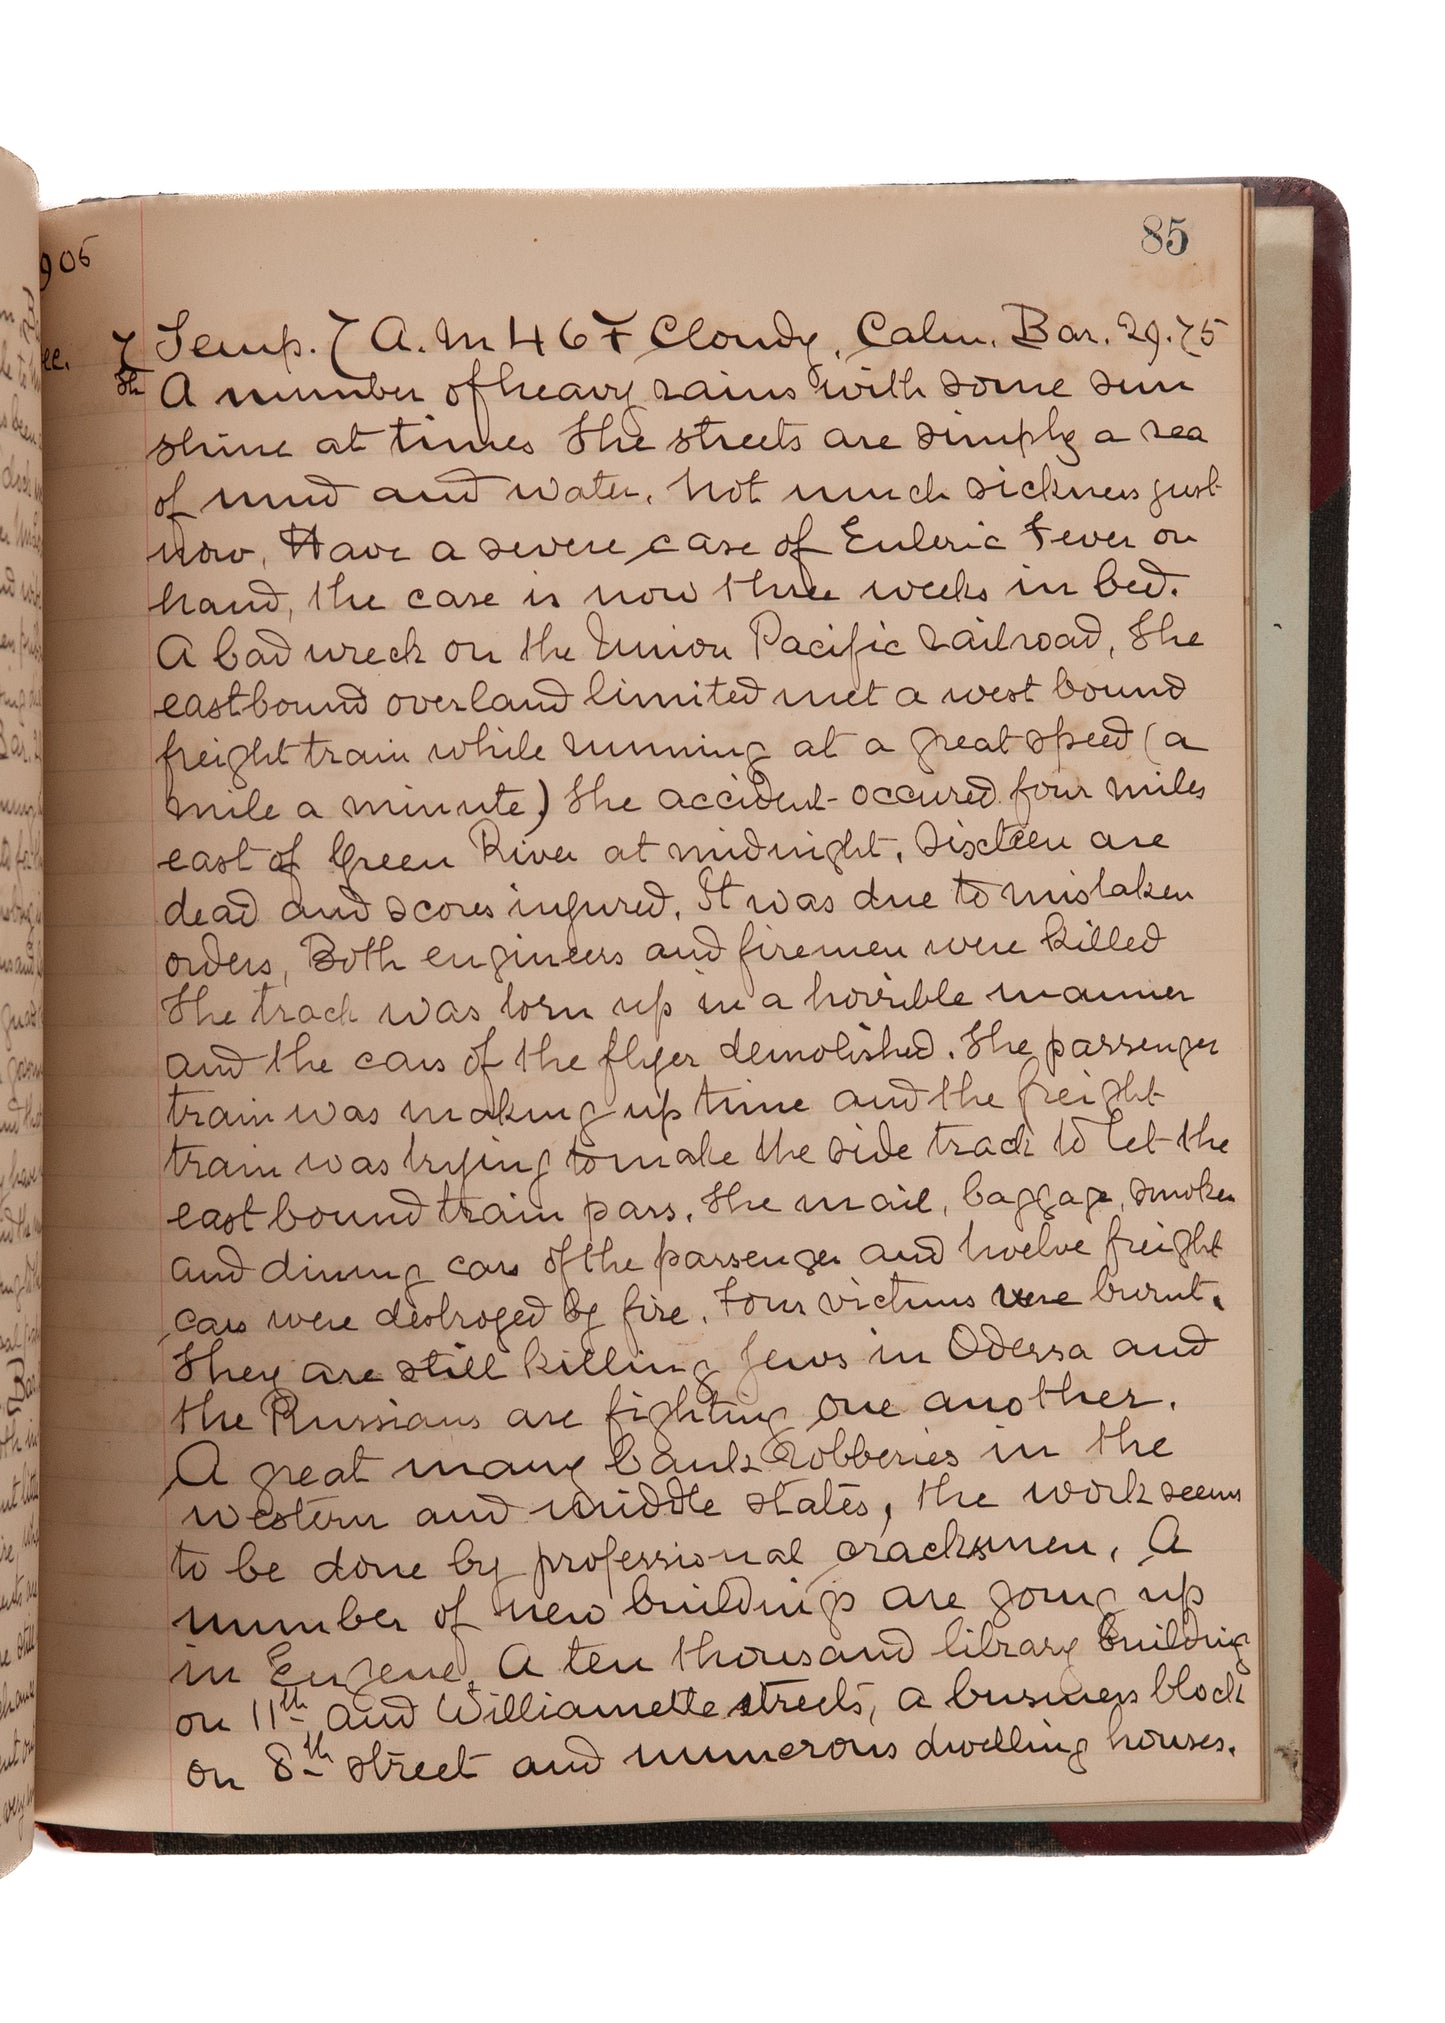 85
905
Dec. 7th Temp. 7 A.M 46 F Cloudy, Calm. Bar. 29.75
A number of heavy rains with some sun
shine at times The streets are simply a sea
of mud and water. Not much sickness just
now, Have a severe case of Enteric Fever on
hand, the case is now three weeks in bed.
A bad wreck on the Union Pacific railroad, The
eastbound overland limited met a west bound
freight train while running at a great speed (a
mile a minute) The accident occured four miles
east of Green River at midnight. Sixteen are
dead and scores injured. It was due to mistaken
orders, Both engineers and firemen were killed
The track was torn up in a horrible manner
and the cars of the flyer demolished. The passenger
train was making up time and the freight
train was trying to make the side track to let the
east bound train pass. The mail, baggage, smoker
and dining cars of the passenger and twelve freight
cars were destroyed by fire. Four victims were burnt.
They are still killing Jews in Odessa and
the Russians are fighting one another.
A great many bank robberies in the
western and middle states, the work seems
to be done by professional cracksmen. A
number of new buildings are going up
in Eugene. A ten thousand library building
on 11th and Williamette streets, a business block
on 8th street and numerous dwelling houses.